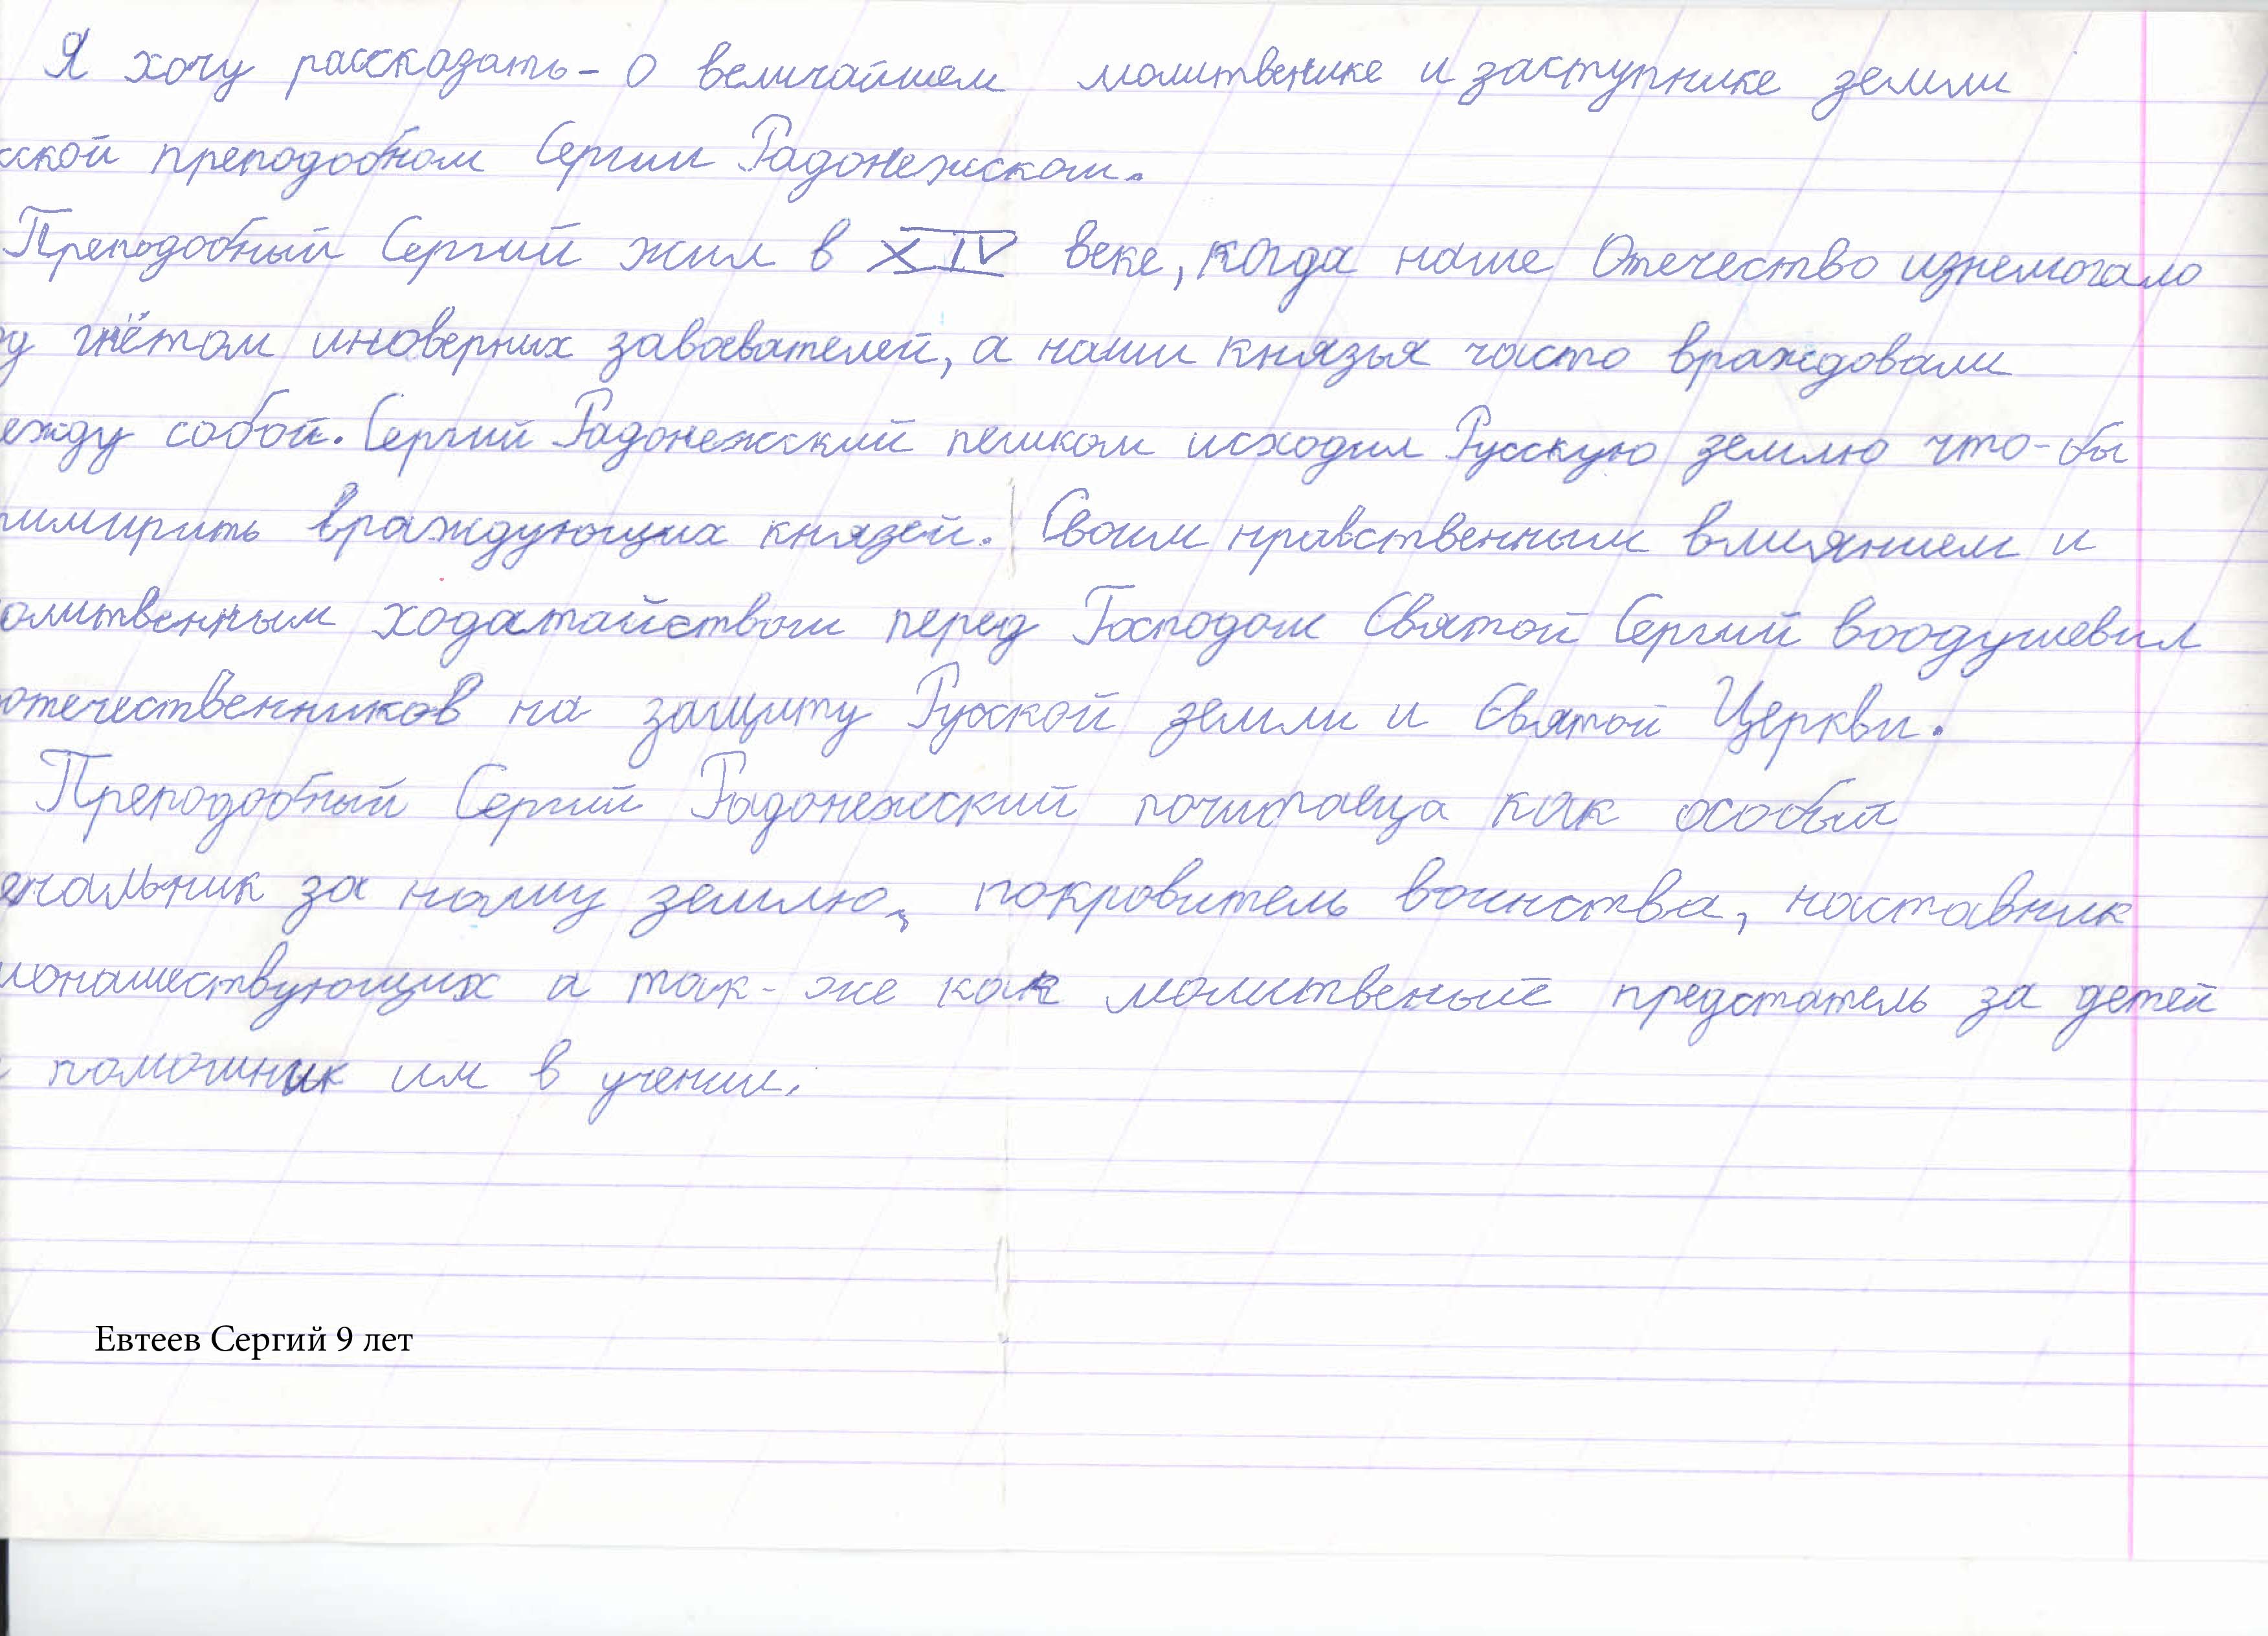 Я хочу рассказать - о величайшем молитвенике и заступнике земли
сской преподобном Сергии Радонежском.
Преподобный Сергий жил в XIV веке, когда наше Отечество изнемогало
у гнётом иноверных завоевателей, а наши князья часто враждовали
ежду собой. Сергий Радонежский пешком исходил Русскую землю что-бы
римирить враждующих князей. Своим нравственным влиянием и
олитвенным ходатайством перед Господом Святой Сергий воодушевил
отечественников на защиту Русской земли и Святой Церкви.
Преподобный Сергий Радонежский почитаеца как особый
ечальник за нашу землю, покровитель воинства, наставник
монашествующих а так-же как молитвеный предстатель за детей
помошник им в учении.
Евтеев Сергий 9 лет